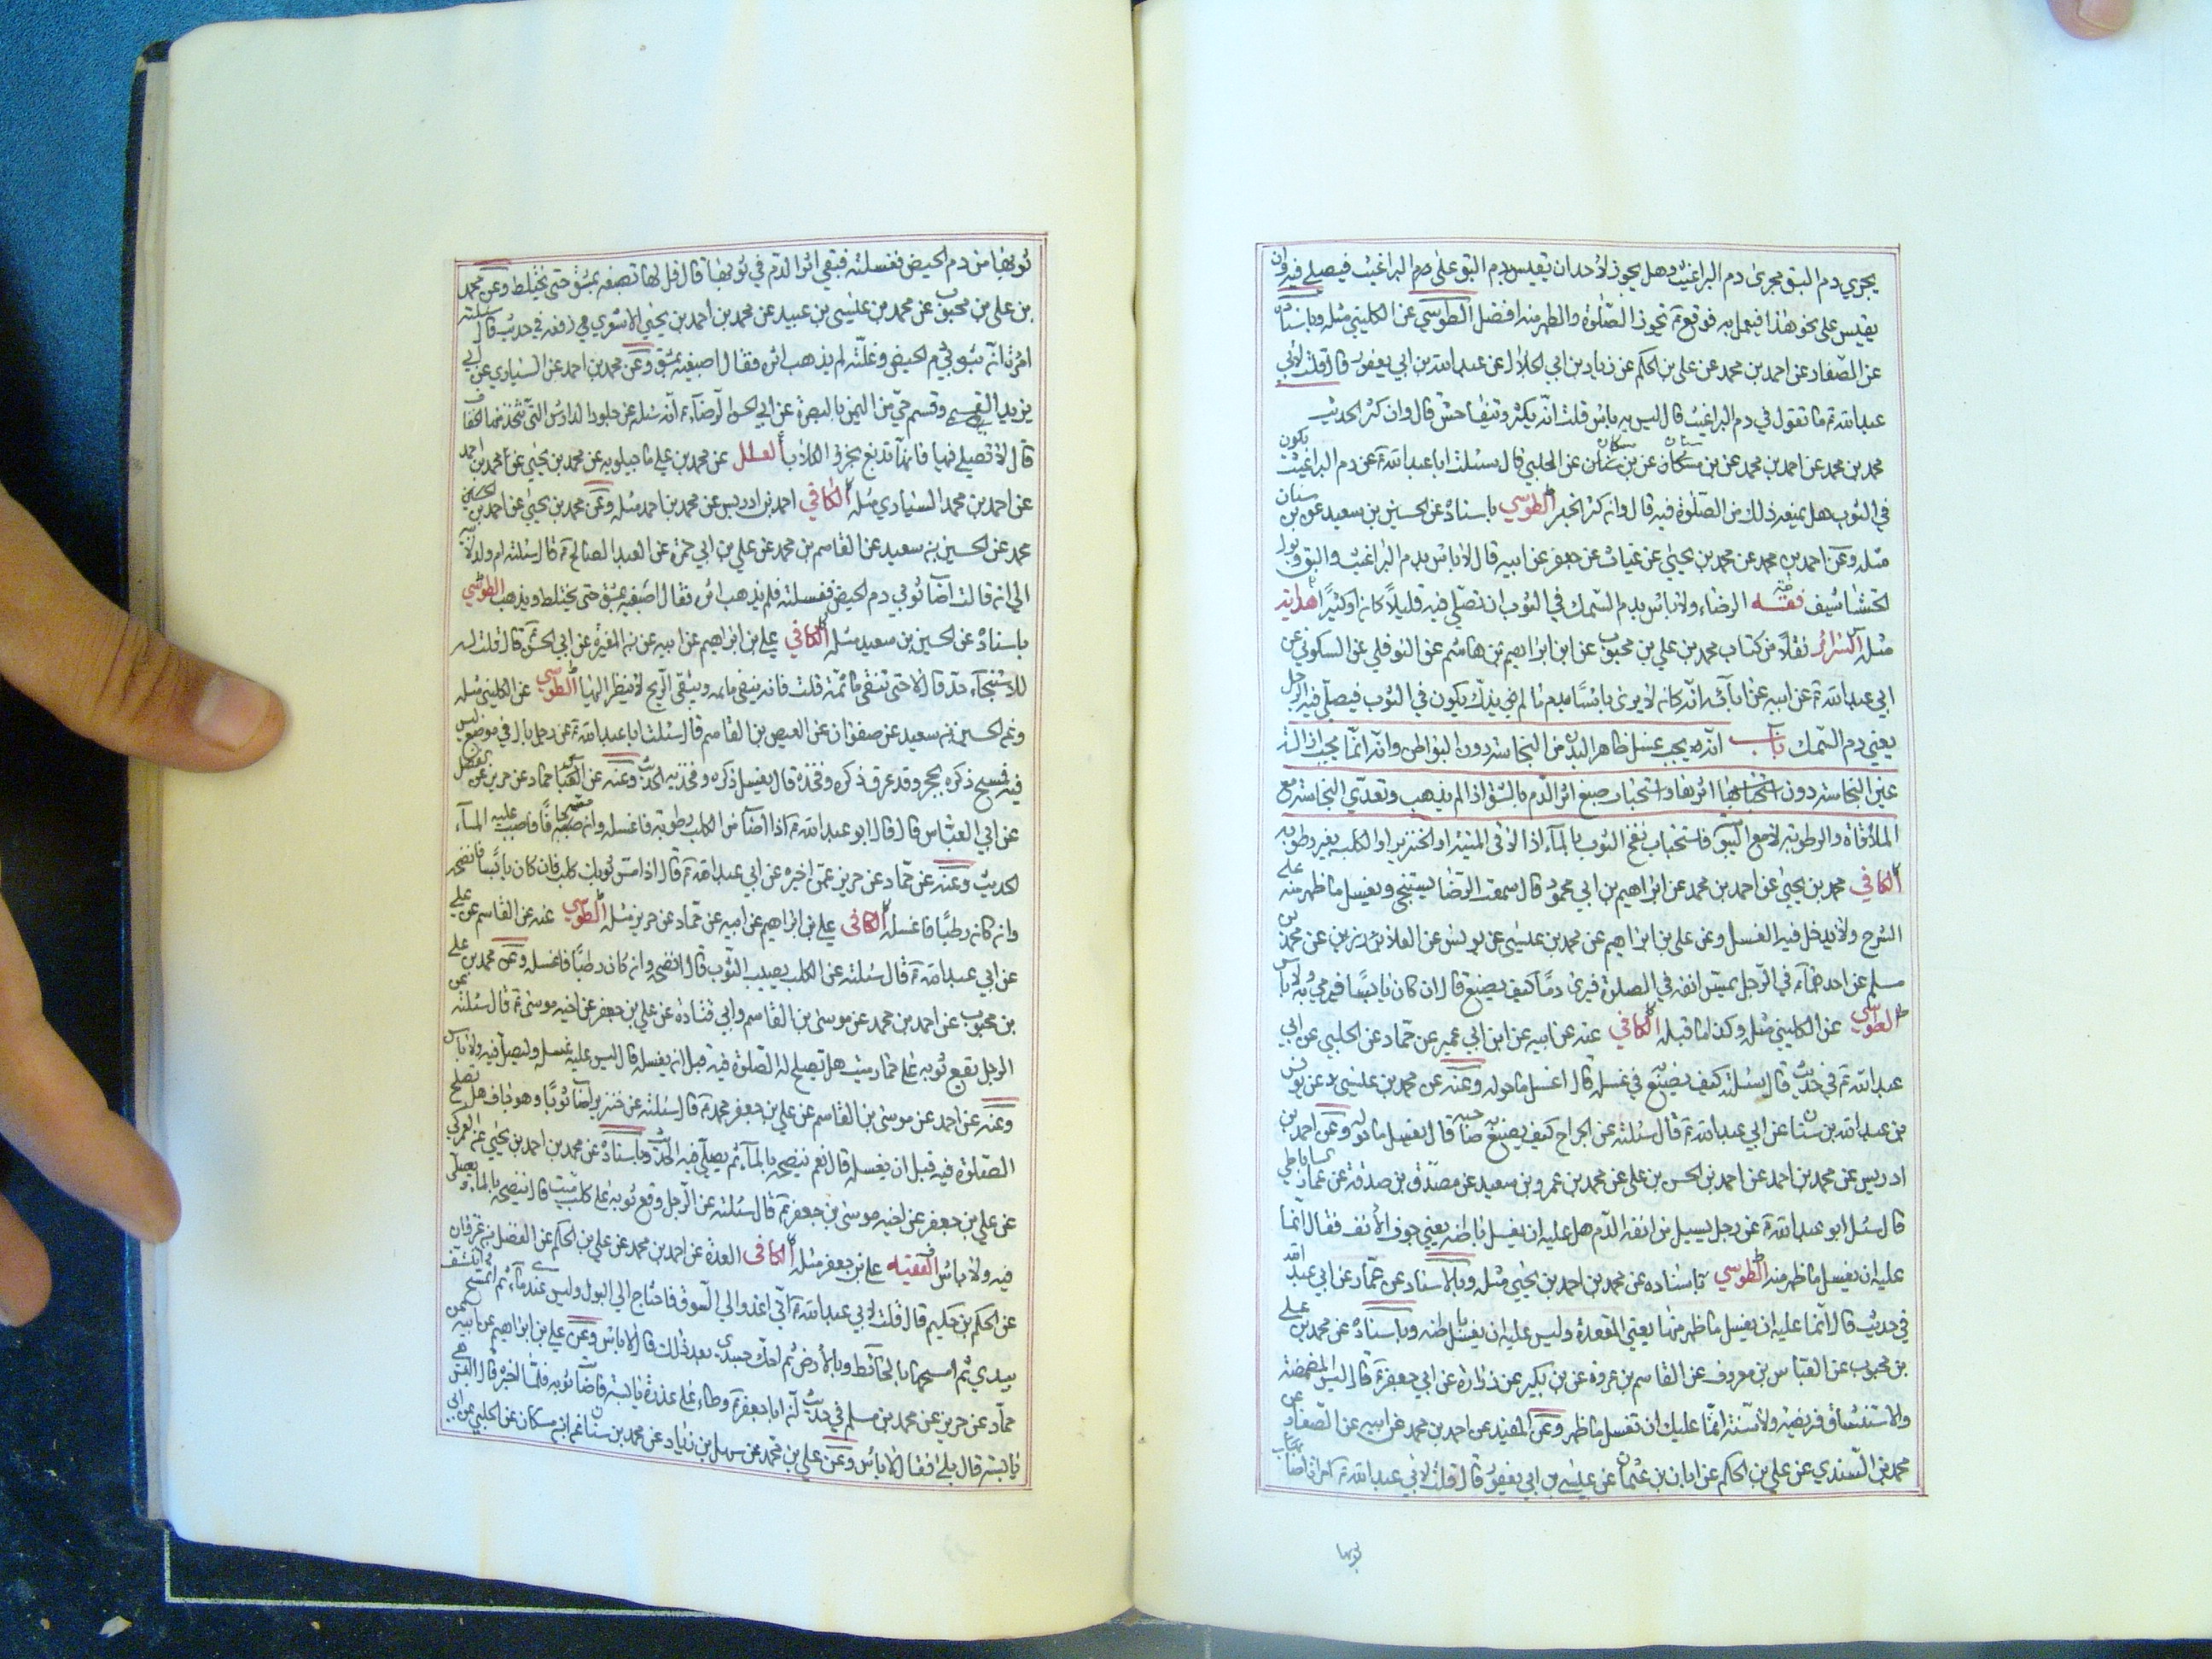 يجري دم البق مجرى دم البراغيث وهل يجوز لأحد ان يقيس بدم البق على دم البراغيث فيصلي فيه وان
يقيس على نحو هذا فيعمل به فوقع ع تجوز الصلوة والطهر منه افضل الطوسي عن الكليني مثله وباسناده
عن الصفار عن احمد بن محمد عن علي بن الحكم عن زياد بن ابي الحلال عن عبد الله بن ابي يعفور قال قلت لأبي
عبد الله ع ما تقول في دم البراغيث قال ليس به باس قلت انه يكثر ويتفاحش قال وان كثر الحديث
محمد بن محمد عن احمد بن محمد عن بن سنان عن بن مسكان عن الحلبي قال سئلت ابا عبد الله ع عن دم البراغيث يكون
في الثوب هل يمنعه ذلك من الصلوة فيه قال وان كثر الخبر الطوسي باسناده عن الحسين بن سعيد عن بن سنان
مثله وعن احمد بن محمد عن محمد بن يحيى عن غياث عن جعفر عن ابيه قال لا باس بدم البراغيث والبق وبول
الخشاشيف فقه الرضاء ولا باس بدم السمك في الثوب ان تصلي فيه قليلاً كان او كثيراً هداية
مثله السرائر نقلاً من كتاب محمد بن علي بن محبوب عن ابن ابراهيم بن هاشم عن النوفلي عن السكوني عن
ابي عبد الله ع عن ابيه عن ابآئه انه كان لا يرى باسًا بدم ما لم يذك يكون في الثوب فيصلي فيه الرجل
يعني دم السمك باب انه يجب غسل ظاهر البدن من النجاسة دون البواطن وانه انما يجب ازالة
عين النجاسة دون اثرها واستحباب صبغ اثر الدم بالمشق اذا لم يذهب وتعدي النجاسة مع
الملاقاة والرطوبة لا مع اليبوسة فاستحباب نضح الثوب بالمآء اذا لاقى الميتة او الخنزير او الكلب بغير رطوبة
الكافي محمد بن يحيى عن احمد بن محمد عن ابراهيم بن ابي محمود قال سمعت الرضا يستنجي ويغسل ما ظهر منه على
الشرج ولا يدخل فيه الغسل وعن علي بن ابراهيم عن محمد بن عيسى عن يونس عن العلا بن رزين عن محمد بن
مسلم عن احدهما ع في الرجل يمس انفه في الصلوة فيرى دمًا كيف يصنع قال ان كان يابسًا فيرمي به ولا باس
الطوسي عن الكليني مثله وكذا ما قبله الكافي عنه عن ابيه عن ابن ابي عمير عن حماد عن الحلبي عن ابي
عبد الله ع في حديث قال سئلته كيف يصنع في غسله قال اغسل ما حوله وعنه عن محمد بن عيسى عن يونس
عن عبد الله بن سنان عن ابي عبد الله ع قال سئلته عن الجراح كيف يصنع صاحبه قال يغسل ما حوله وعن احمد بن
ادريس عن محمد بن احمد عن احمد بن الحسن بن علي عن محمد بن عمرو بن سعيد عن مصدق بن صدقة عن عمار الساباطي
قال سئل ابو عبد الله ع عن رجل يسيل من انفه الدم هل عليه ان يغسل باطنه يعني جوف الأنف فقال انما
عليه ان يغسل ما ظهر منه الطوسي باسناده عن محمد بن احمد بن يحيى مثله وبالاسناد عن عمار عن ابي عبد الله
في حديث قال انما عليه ان يغسل ما ظهر منها يعني المقعدة وليس عليه ان يغسل باطنه وباسناده عن محمد بن علي
بن محبوب عن العباس بن معروف عن القاسم بن عروة عن بن بكير عن زرارة عن ابي جعفر ع قال ليس المضمضة
والاستنشاق فريضة ولا سنة انما عليك ان تغسل ما ظهر وعن المفيد عن احمد بن محمد عن ابيه عن الصفار عن
محمد بن السندي عن علي بن الحكم عن ابان بن عثمان عن عيسى بن ابي منصور قال قلت لأبي عبد الله ع امراة اصاب
ثوبها
ثوبها من دم الحيض فغسلته فبقي اثر الدم في ثوبها قال قل لها تصبغه بمشق حتى يختلط وعن محمد
بن علي بن محبوب عن محمد بن عيسى بن عبيد عن محمد بن احمد بن يحيى الاشعري رفعه في حديث قال سئلته
امراة انه بثوبي دم الحيض وغسلته لم يذهب اثره فقال اصبغيه بمشق وعن محمد بن احمد عن السياري عن ابي
يزيد القسمي وقسم حي من اليمن بالبصرة عن ابي الحسن الرضآء ع انه سئله عن جلود الدارش التي تتخذ منها الخفاف
قال لا تصلي فيها فانها تدبغ بخرؤ الكلاب العلل عن محمد بن علي ماجيلويه عن محمد بن يحيى عن محمد بن احمد
عن احمد بن محمد السياري مثله الكافي احمد بن ادريس عن محمد بن احمد مثله وعن محمد بن يحيى عن احمد بن
محمد عن الحسين بن سعيد عن القاسم بن محمد عن علي بن ابي حمزة عن العبد الصالح ع قال سئلته ام ولد لأبيه
الى انه قالت اصاب ثوبي دم الحيض فغسلته فلم يذهب اثره فقال اصبغيه بمشق حتى يختلط ويذهب الطوسي
باسناده عن الحسين بن سعيد مثله الكافي علي بن ابراهيم عن ابيه عن بن المغيرة عن ابي الحسن ع قال قلت له
للاستنجآء حد قال لا حتى تنقي ما ثمة قلت فانه ينقي ما ثمه ويبقى الريح قال الريح لا ينظر اليها الطوسي عن الكليني مثله
وعن الحسين بن سعيد عن صفوان عن العيص بن القاسم قال سئلت ابا عبد الله ع عن رجل بال في موضع ليس
فيه فمسح ذكره بحجر وقد عرق ذكره وفخذه قال يغسل ذكره وفخذيه الحديث وعنه عن حماد عن حريز عن الفضل
عن ابي العباس قال قال ابو عبد الله ع اذا اصاب الكلب رطوبة فاغسله وان مسه جافًا فاصبب عليه المآء
الحديث وعنه عن حماد عن حريز عمن اخبره عن ابي عبد الله ع قال اذا مس ثوبك كلب فان كان يابسًا فانضحه
وان كان رطبًا فاغسله الكافي علي بن ابراهيم عن ابيه عن حماد عن حريز مثله الطوسي عنه عن القاسم عن علي
عن ابي عبد الله ع قال سئلته عن الكلب يصيب الثوب قال انضحه وان كان رطبًا فاغسله وعن محمد بن علي
بن محبوب عن احمد بن محمد عن موسى بن القاسم وابي قتادة عن علي بن جعفر عن اخيه موسى ع قال سئلته عن
الرجل يقع ثوبه على حمار ميت هل تصلح له الصلوة فيه قبل ان يغسله قال ليس عليه غسله وليصل فيه ولا باس
وعنه عن احمد عن موسى بن القاسم عن علي بن جعفر قال سئلته عن خنزير اصاب ثوبًا وهو جاف هل تصلح
الصلوة فيه قبل ان يغسله قال نعم ينضحه بالمآء ثم يصلي فيه الحديث وباسناده عن محمد بن احمد بن يحيى عن العمركي
عن علي بن جعفر عن اخيه موسى بن جعفر ع قال سئلته عن الرجل وقع ثوبه على كلب ميت قال ينضحه بالمآء ويصلي
فيه ولا باس الفقيه علي بن جعفر مثله الكافي العدة عن احمد بن محمد عن علي بن الحكم عن الفضل بن غزوان
عن الحكم بن حكيم قال قلت لأبي عبد الله ع اني اغدو الى السوق فاحتاج الى البول وليس عندي مآء ثم اتمسح واتنشف
بيدي ثم امسحهما بالحائط وبالأرض ثم احك جسدي بعد ذلك قال لا باس وعن علي بن ابراهيم عن ابيه عن
حماد عن حريز عن محمد بن مسلم في حديث ان ابا جعفر ع وطاء على عذرة يابسة فاصاب ثوبه فلما اخبره قال اليس هي
يابسة قال بلى فقال لا باس وعن علي بن محمد عن سهل بن زياد عن محمد بن سنان عن ابن مسكان عن الحلبي عن ابي